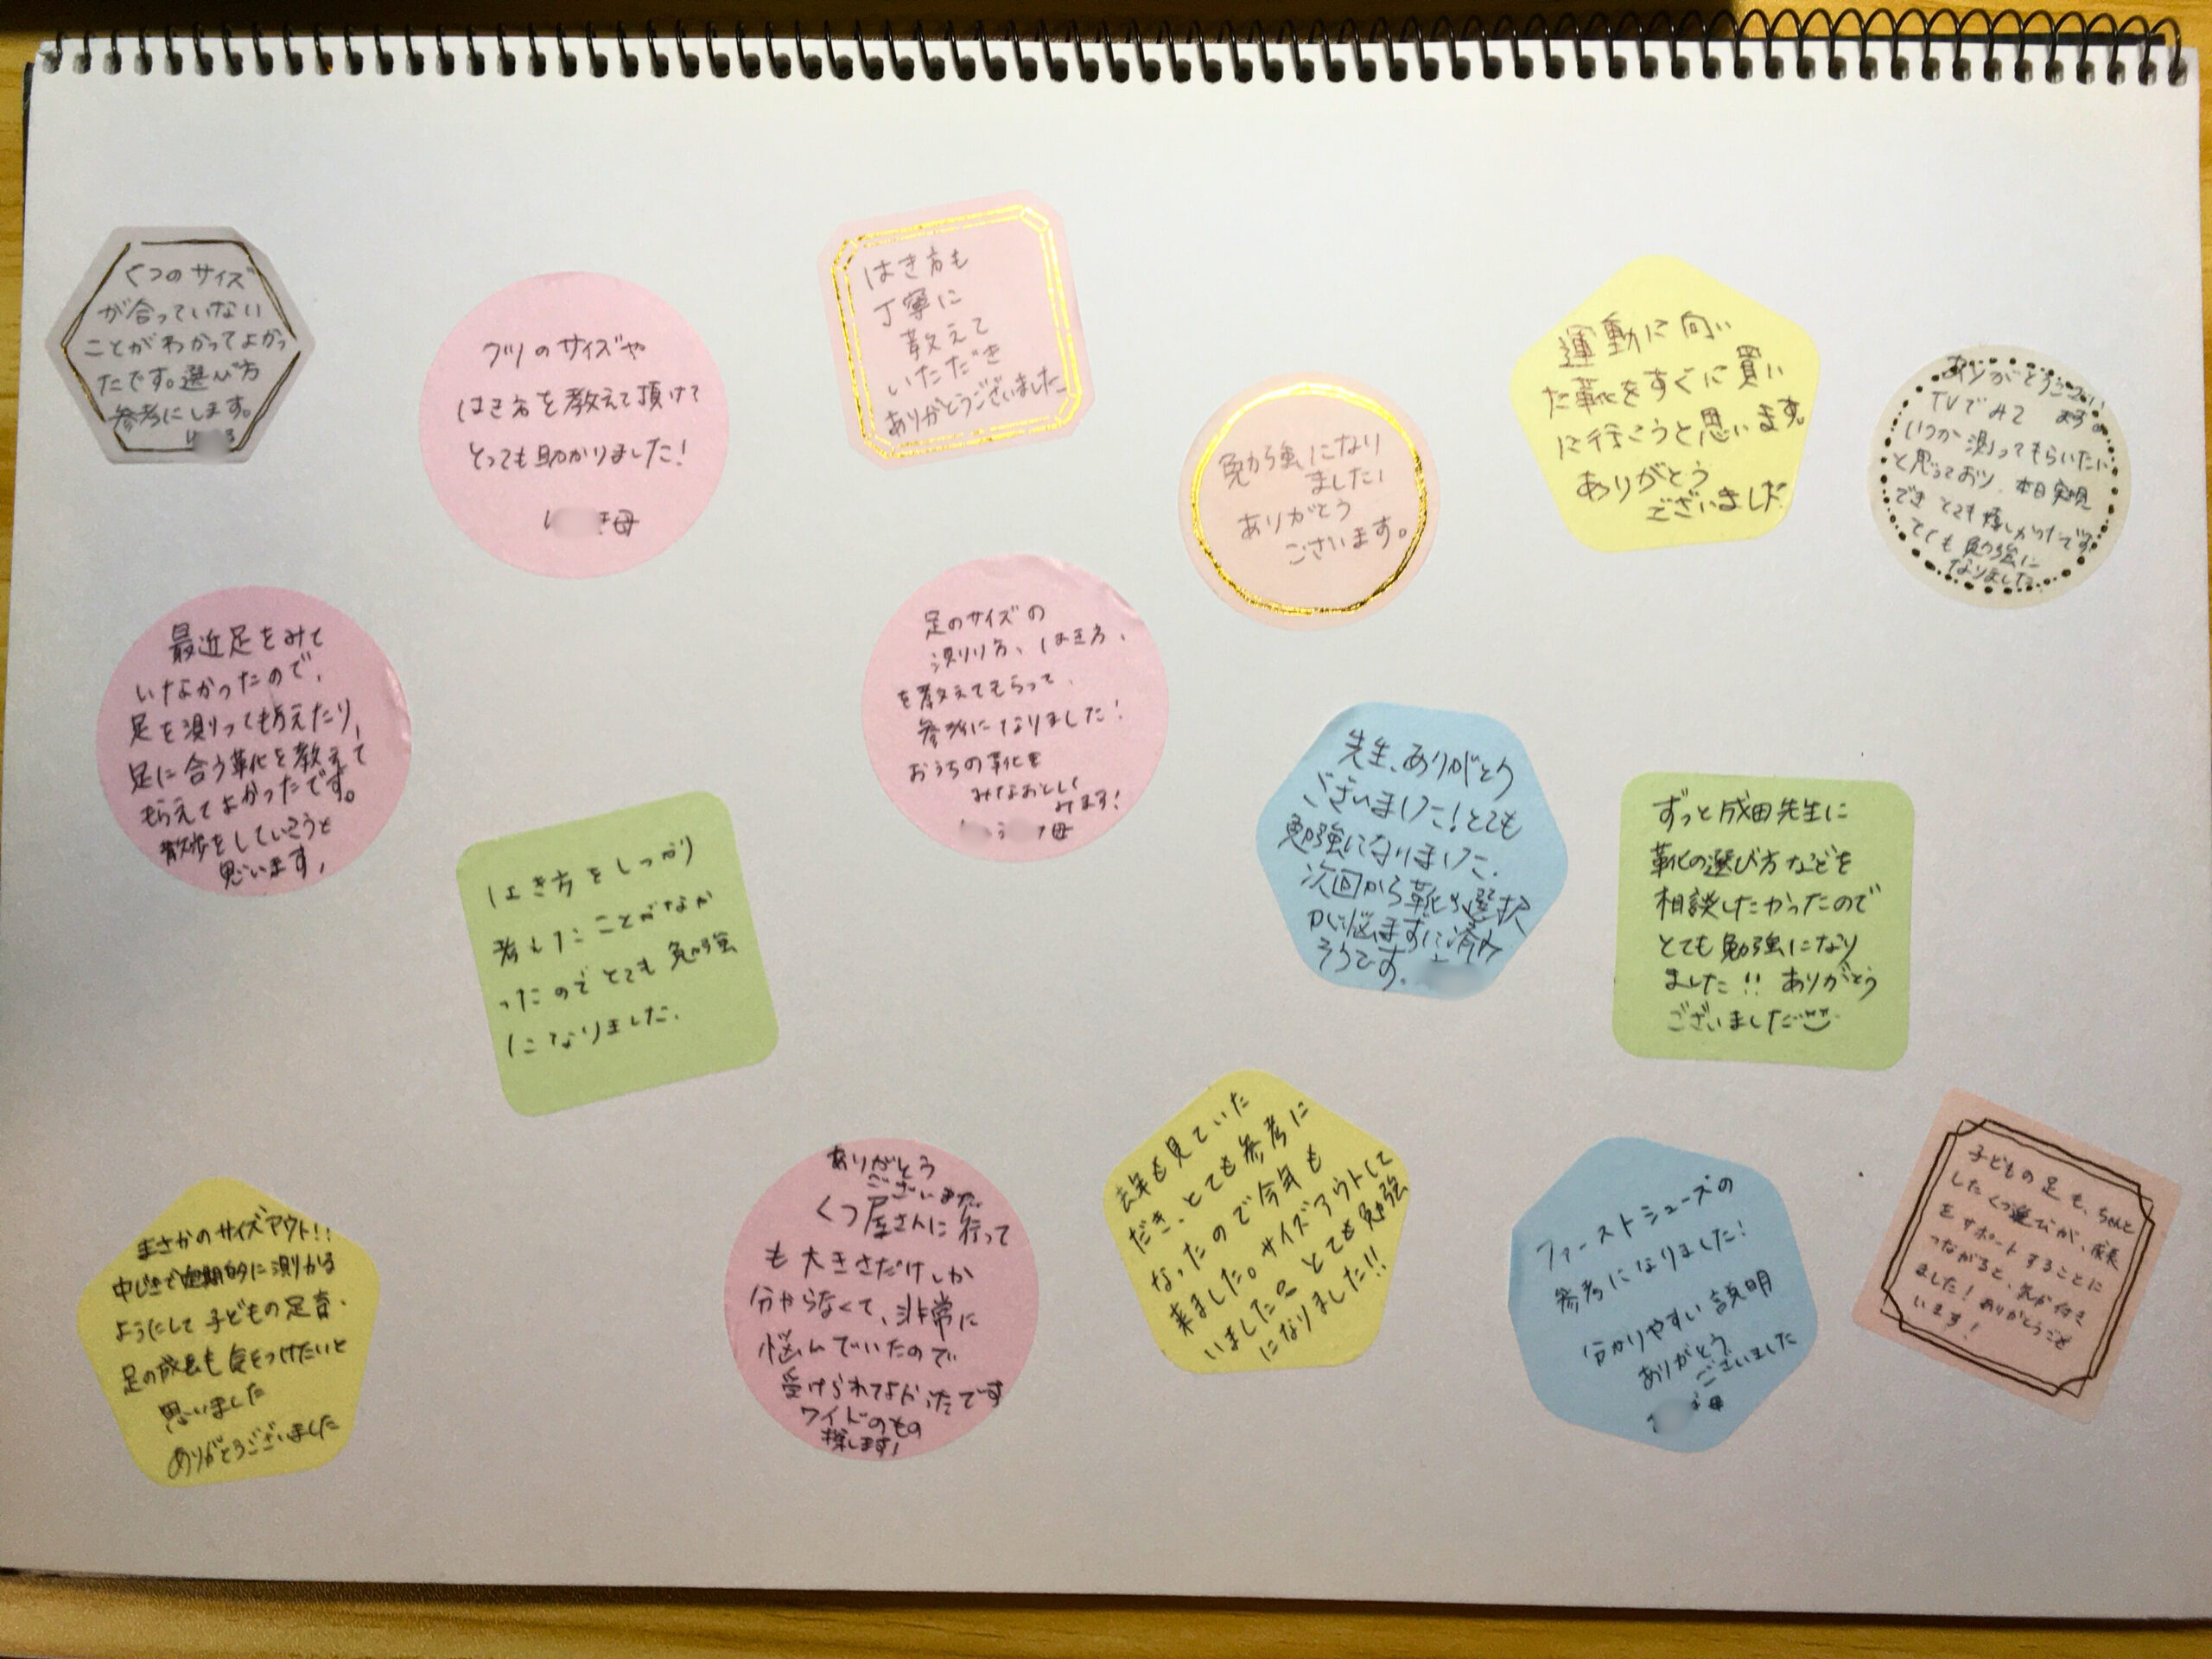 くつのサイズ
が合っていない
ことがわかってよかっ
たです。選び方
参考にします。
クツのサイズや
はき方を教えて頂けて
とっても助かりました!
母
はき方も
丁寧に
教えて
いただき
ありがとうございました
勉強になり
ました!
ありがとう
ございます。
運動に向い
た靴をすぐに買い
に行こうと思います。
ありがとう
ございました
ありがとうござい
ます。
TVでみて
いつか測ってもらいたい
と思っており、本日実現
でき とても嬉しかったです
とても勉強に
なりました
最近足をみて
いなかったので、
足を測ってもらえたり、
足に合う靴を教えて
もらえてよかったです。
散歩をしていこうと
思います。
はき方をしっかり
考えたことがなか
ったのでとても勉強
になりました。
足のサイズの
測り方、はき方、
を教えてもらって、
参考になりました!
おうちの靴を
みなおして
みます!
母
先生、ありがとう
ございました!とても
勉強になりました。
次回から靴の選択
が悩まずに済み
そうです。
ずっと成田先生に
靴の選び方などを
相談したかったので
とても勉強になり
ました!! ありがとう
ございました
まさかのサイズアウト!!
定期的に測かる
ようにして子どもの足育、
足の成長も気をつけたいと
思いました
ありがとうございました
ありがとう
ございました
くつ屋さんに行って
も大きさだけしか
分からなくて、非常に
悩んでいたので
受けられてよかったです
ワイドのもの
探します!
去年も見ていた
だき、とても参考に
なったので今年も
来ました。サイズアウトして
いました とても勉強
になりました!!
ファーストシューズの
参考になりました!
分かりやすい説明
ありがとう
ございました
母
子どもの足も、ちゃんと
したくつ選びが、成長
をサポートすることに
つながると、気が付き
ました!ありがとうござ
います!